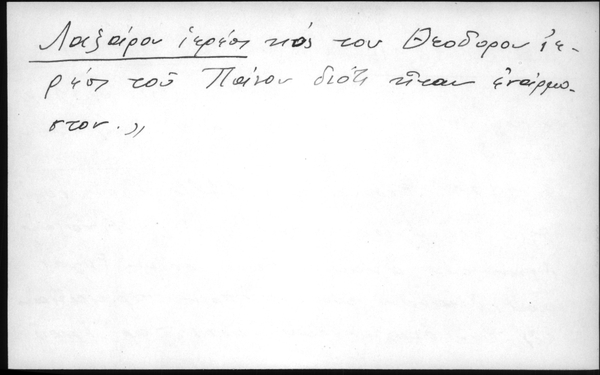 Λαξαίρου ἱερέως καὶ του Θεοδορου ἱε-
ρέως τοῦ Παίνου διότι ἦταν ἐναίρμο-
στον.»